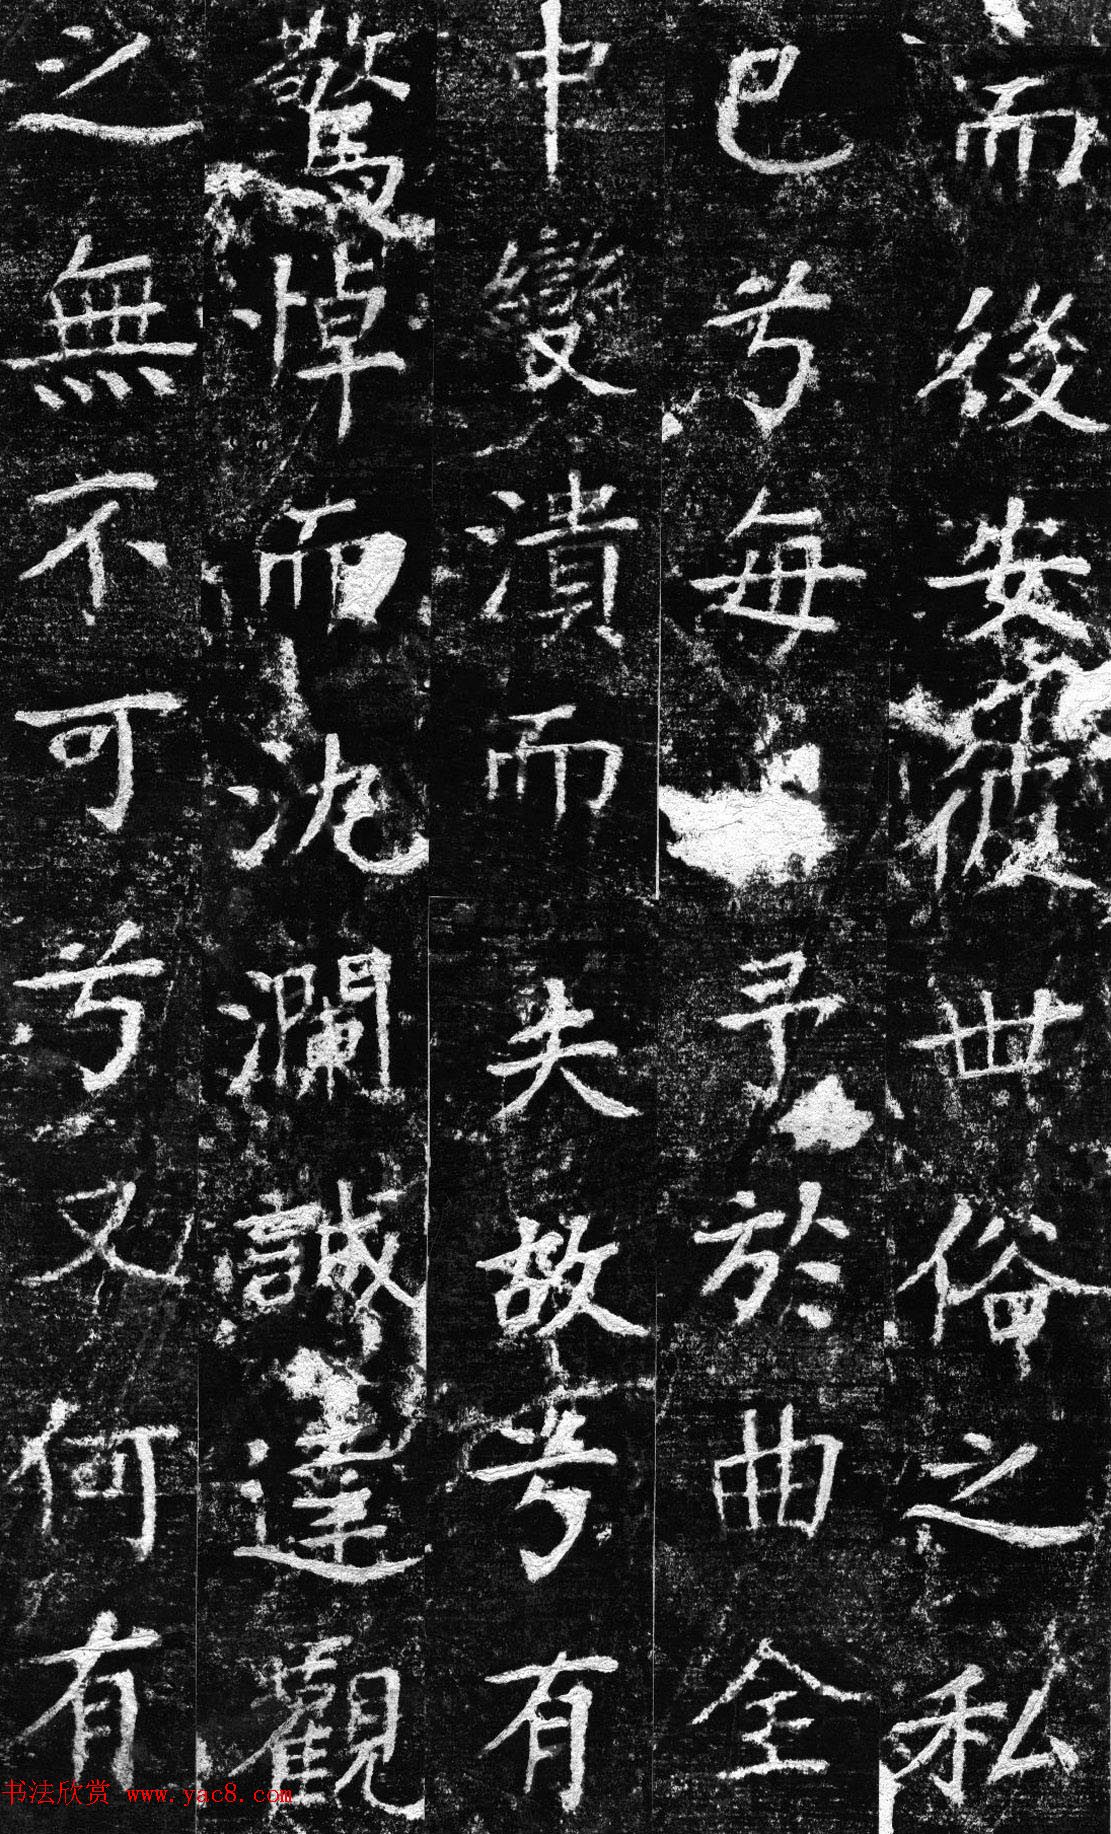 而後安彼世俗之私
已兮每予於曲全
中變潰而失故兮有
驚悼而沈瀾誠達觀
之無不可兮又何有
书法欣赏 www.yac8.com